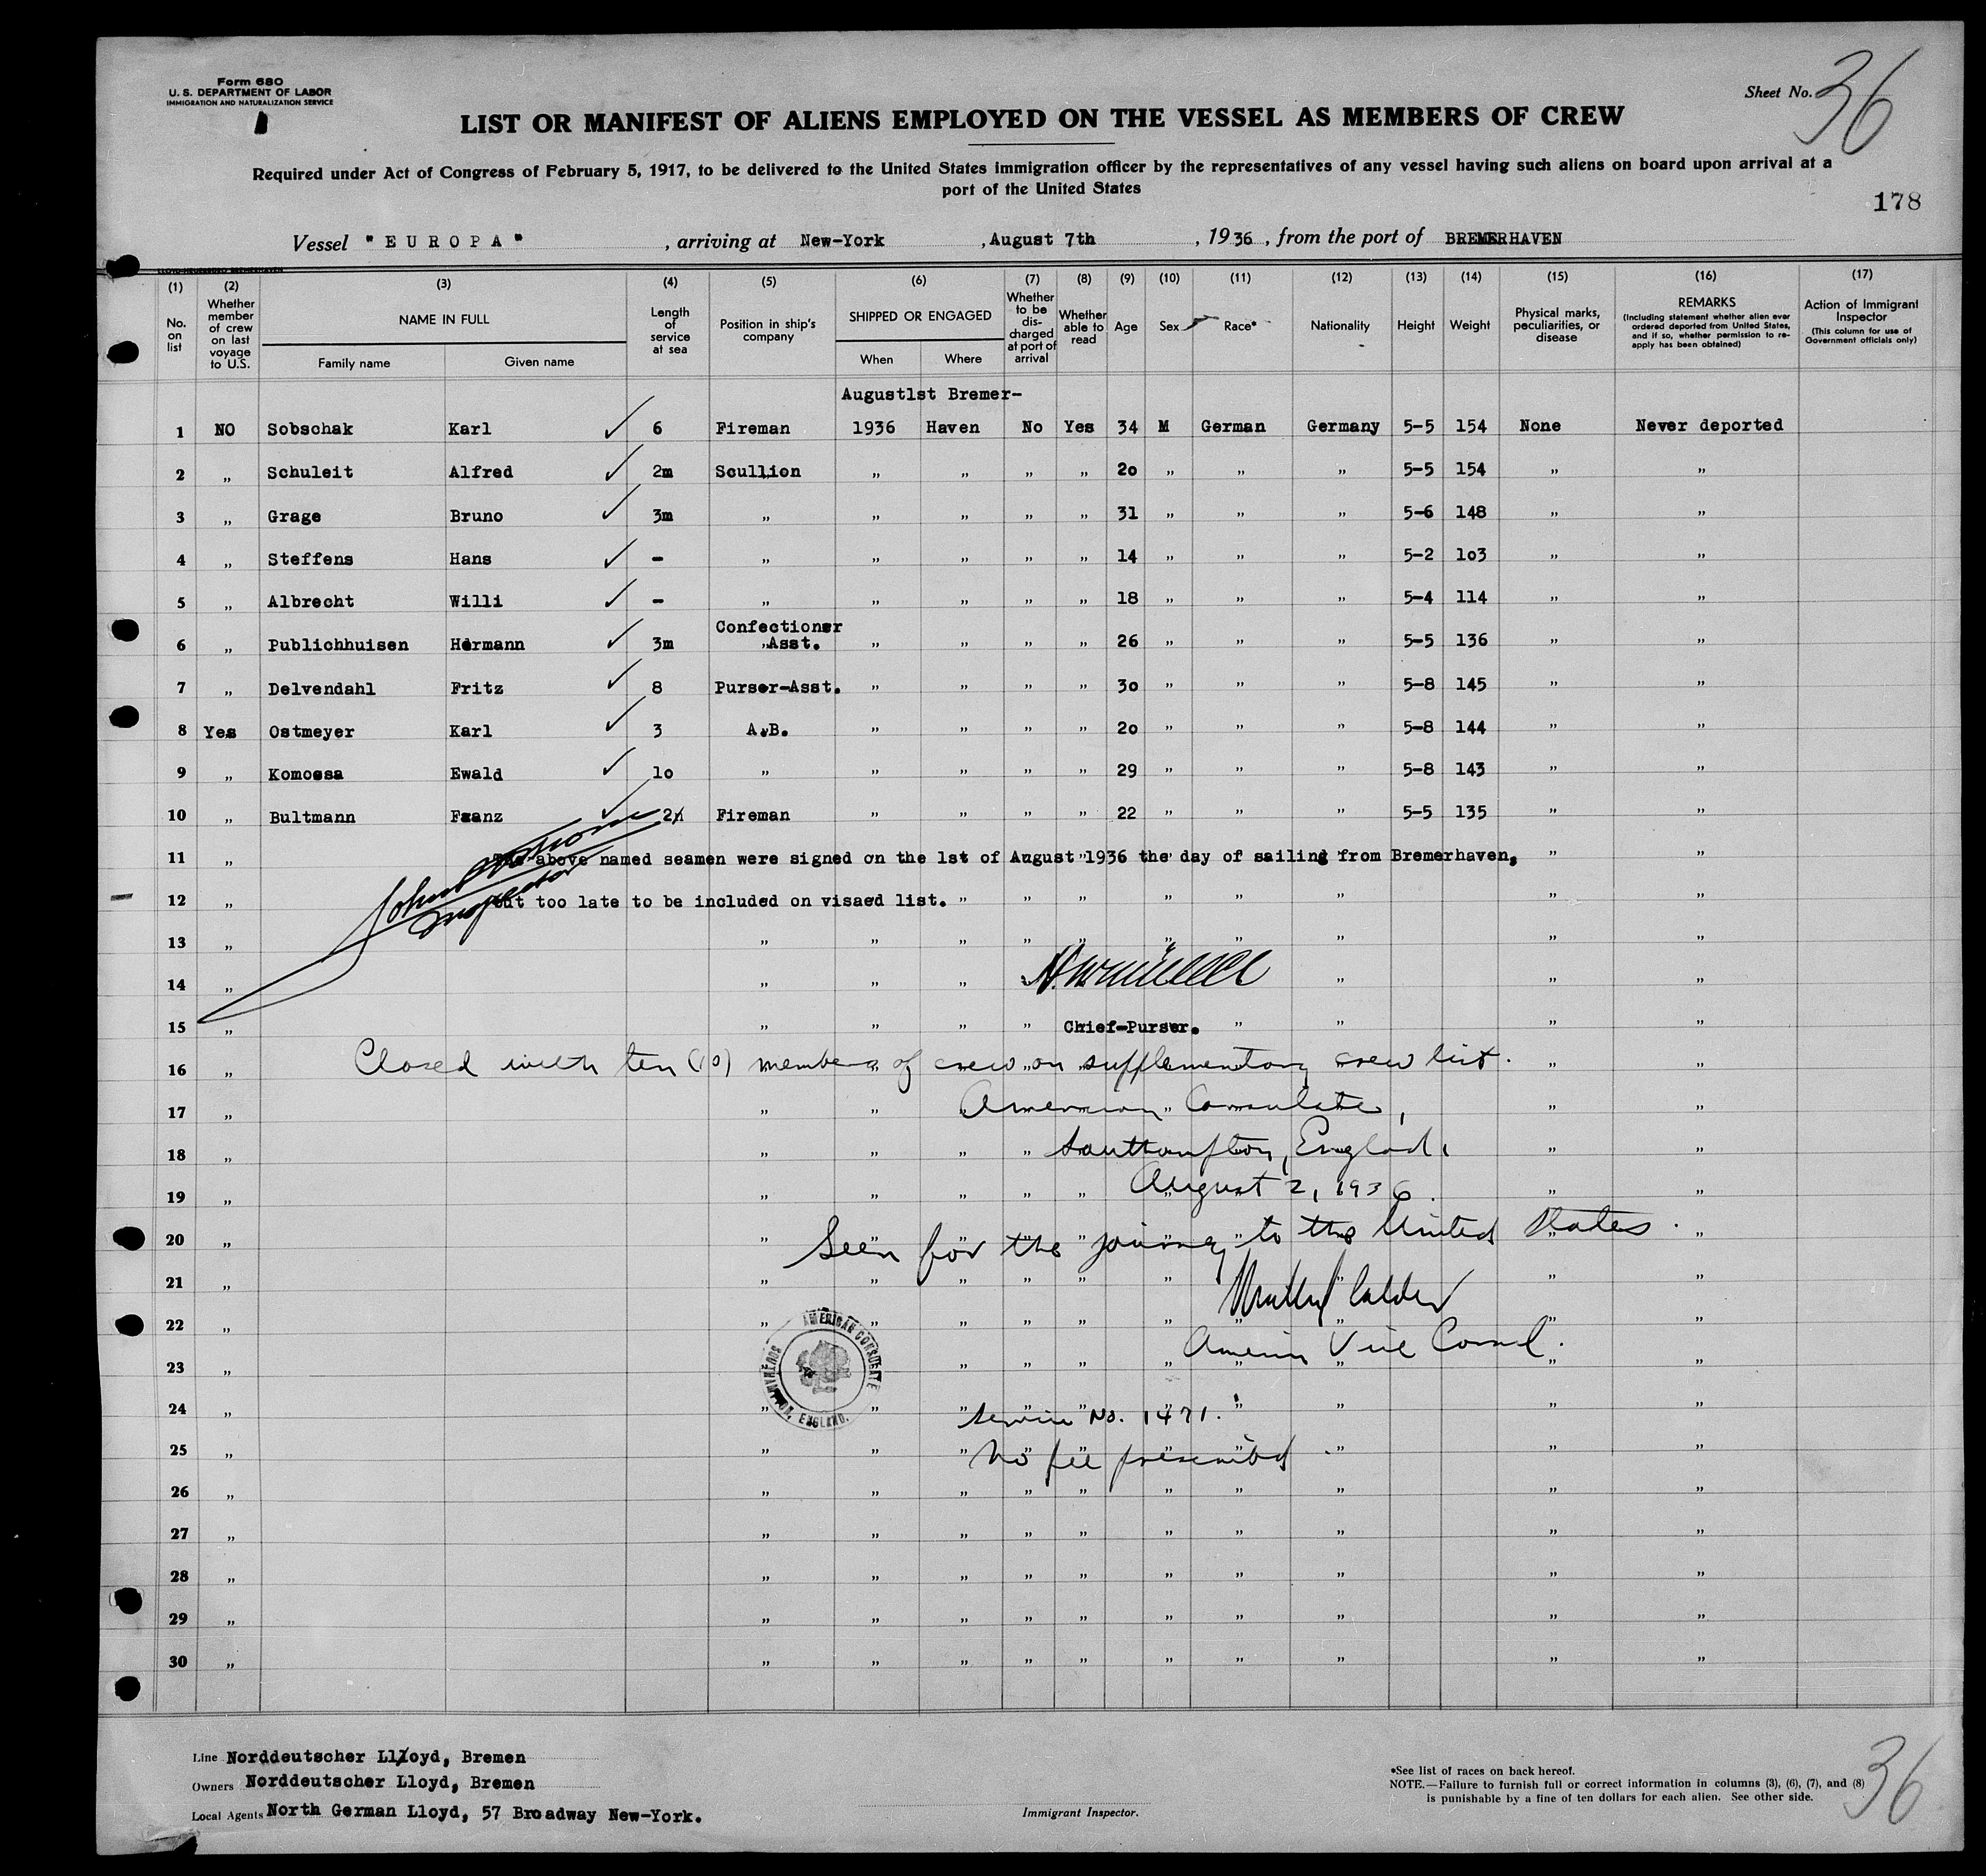 Form 680
U. S. DEPARTMENT OF LABOR
IMMIGRATION AND NATURALIZATION SERVICE
Sheet No. 36
LIST OR MANIFEST OF ALIENS EMPLOYED ON THE VESSEL AS MEMBERS OF CREW
Required under Act of Congress of February 5, 1917, to be delivered to the United States immigration officer by the representatives of any vessel having such aliens on board upon arrival at a
port of the United States
178
Vessel "EUROPA", arriving at New-York, August 7th, 1936, from the port of BREMERHAVEN
(1) No. on list
(2) Whether member of crew on last voyage to U.S.
(3) NAME IN FULL Family name Given name
(4) Length of service at sea
(5) Position in ship's company
(6) SHIPPED OR ENGAGED When Where
(7) Whether to be discharged at port of arrival
(8) Whether able to read
(9) Age
(10) Sex
(11) Race*
(12) Nationality
(13) Height
(14) Weight
(15) Physical marks, peculiarities, or disease
(16) REMARKS (Including statement whether alien ever ordered deported from United States, and if so, whether permission to re-apply has been obtained)
(17) Action of Immigrant Inspector (This column for use of Government officials only)
August1st Bremer-
1 NO Sobschak Karl ✓ 6 Fireman 1936 Haven No Yes 34 M German Germany 5-5 154 None Never deported
2 " Schuleit Alfred ✓ 2m Scullion " " " " 20 " " " 5-5 154 " "
3 " Grage Bruno ✓ 3m " " " " " 31 " " " 5-6 148 " "
4 " Steffens Hans ✓ - " " " " " 14 " " " 5-2 103 " "
5 " Albrecht Willi ✓ - " " " " " 18 " " " 5-4 114 " "
Confectioner
6 " Publichhuisen Hermann ✓ 3m "Asst. " " " " 26 " " " 5-5 136 " "
7 " Delvendahl Fritz ✓ 8 Purser-Asst. " " " " 30 " " " 5-8 145 " "
8 Yes Ostmeyer Karl ✓ 3 A.B. " " " " 20 " " " 5-8 144 " "
9 " Komossa Ewald ✓ 10 " " " " " 29 " " " 5-8 143 " "
10 " Bultmann Franz ✓ 2 Fireman " " " " 22 " " " 5-5 135 " "
11 " The above named seamen were signed on the 1st of August 1936 the day of sailing from Bremerhaven, " "
John
Inspector
12 " but too late to be included on visaed list. " " " " " " " "
13 " " " " " " " " " " "
14 " " " " " " "
15 " " " " " Chief-Purser. " " " "
16 " Closed with ten (10) members of crew on supplementary crew list. " "
17 " " " American Consulate, " "
18 " " " " " Southampton, England, " "
19 " " " " " " August 2, 1936. " "
20 " " Seen for the journey to the United States. "
21 " " " " " " " " "
22 " " " " " " " " " " "
American Vice Consul.
23 " " " " " " " " "
AMERICAN CONSULATE
SOUTHAMPTON, ENGLAND.
24 " " " Service No. 1471. " " "
25 " " " No fee prescribed " " "
26 " " " " " " " " " " "
27 " " " " " " " " " " "
28 " " " " " " " " " " "
29 " " " " " " " " " " "
30 " " " " " " " " " " "
Line Norddeutscher Lloyd, Bremen
Owners Norddeutscher Lloyd, Bremen
Local Agents North German Lloyd, 57 Broadway New-York.
Immigrant Inspector.
*See list of races on back hereof.
NOTE.—Failure to furnish full or correct information in columns (3), (6), (7), and (8)
is punishable by a fine of ten dollars for each alien. See other side.
36